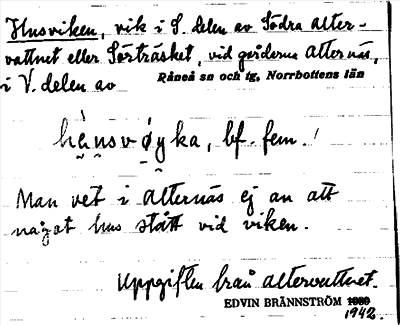 Husviken, vik i S. delen av Södra Alter-
vattnet eller Sörträsket, vid gårderna Alternäs,
i V. delen av Råneå sn och tg, Norrbottens län
hånsvøyka, bf. fem.!
Man vet i Alternäs ej an att
något hus stått vid viken.
Uppgiften från Altervattnet.
EDVIN BRÄNNSTRÖM
1942.